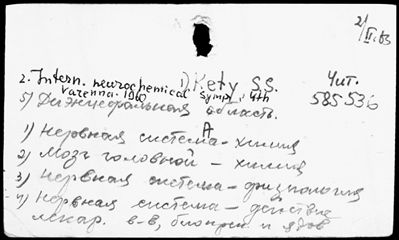 2/VI.63
2. Intern. neurochemical sympl, 4th 1) Kety S.S. Чит.
Varenna 1960 585536
5) Диэнцефальная область.
А
1) Нервная система – химия
2) Мозг головной – химия
3) Нервная система – физиология
4) Нервная система – действие
лекар. в-в, биопреп. и ядов